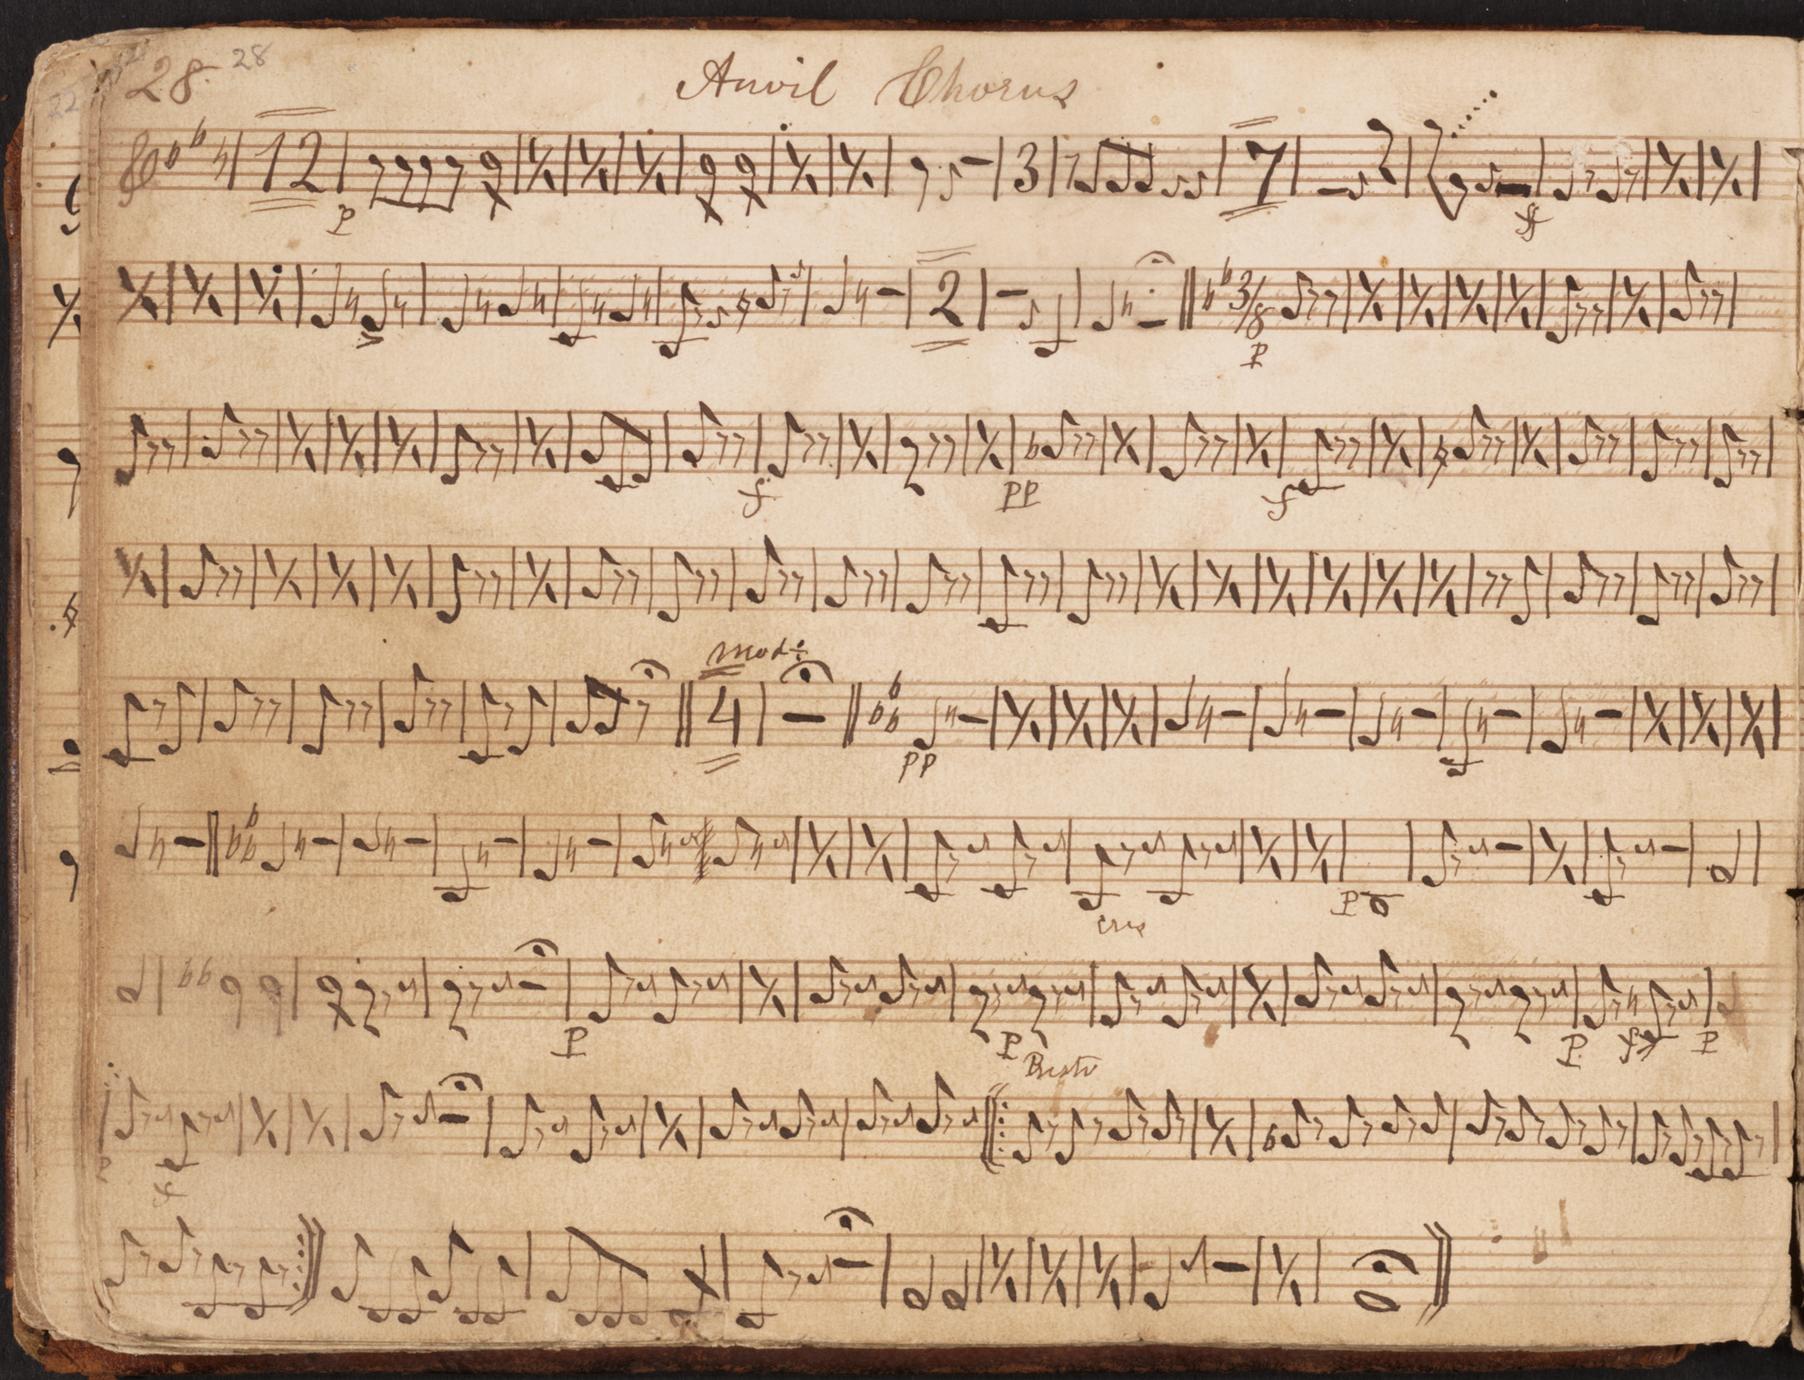 28. 28
Anvil Chorus
12 3 7
p ff
2 3/8
p
f pp f
mod:
4
pp
cres p
p p p ff p
Presto